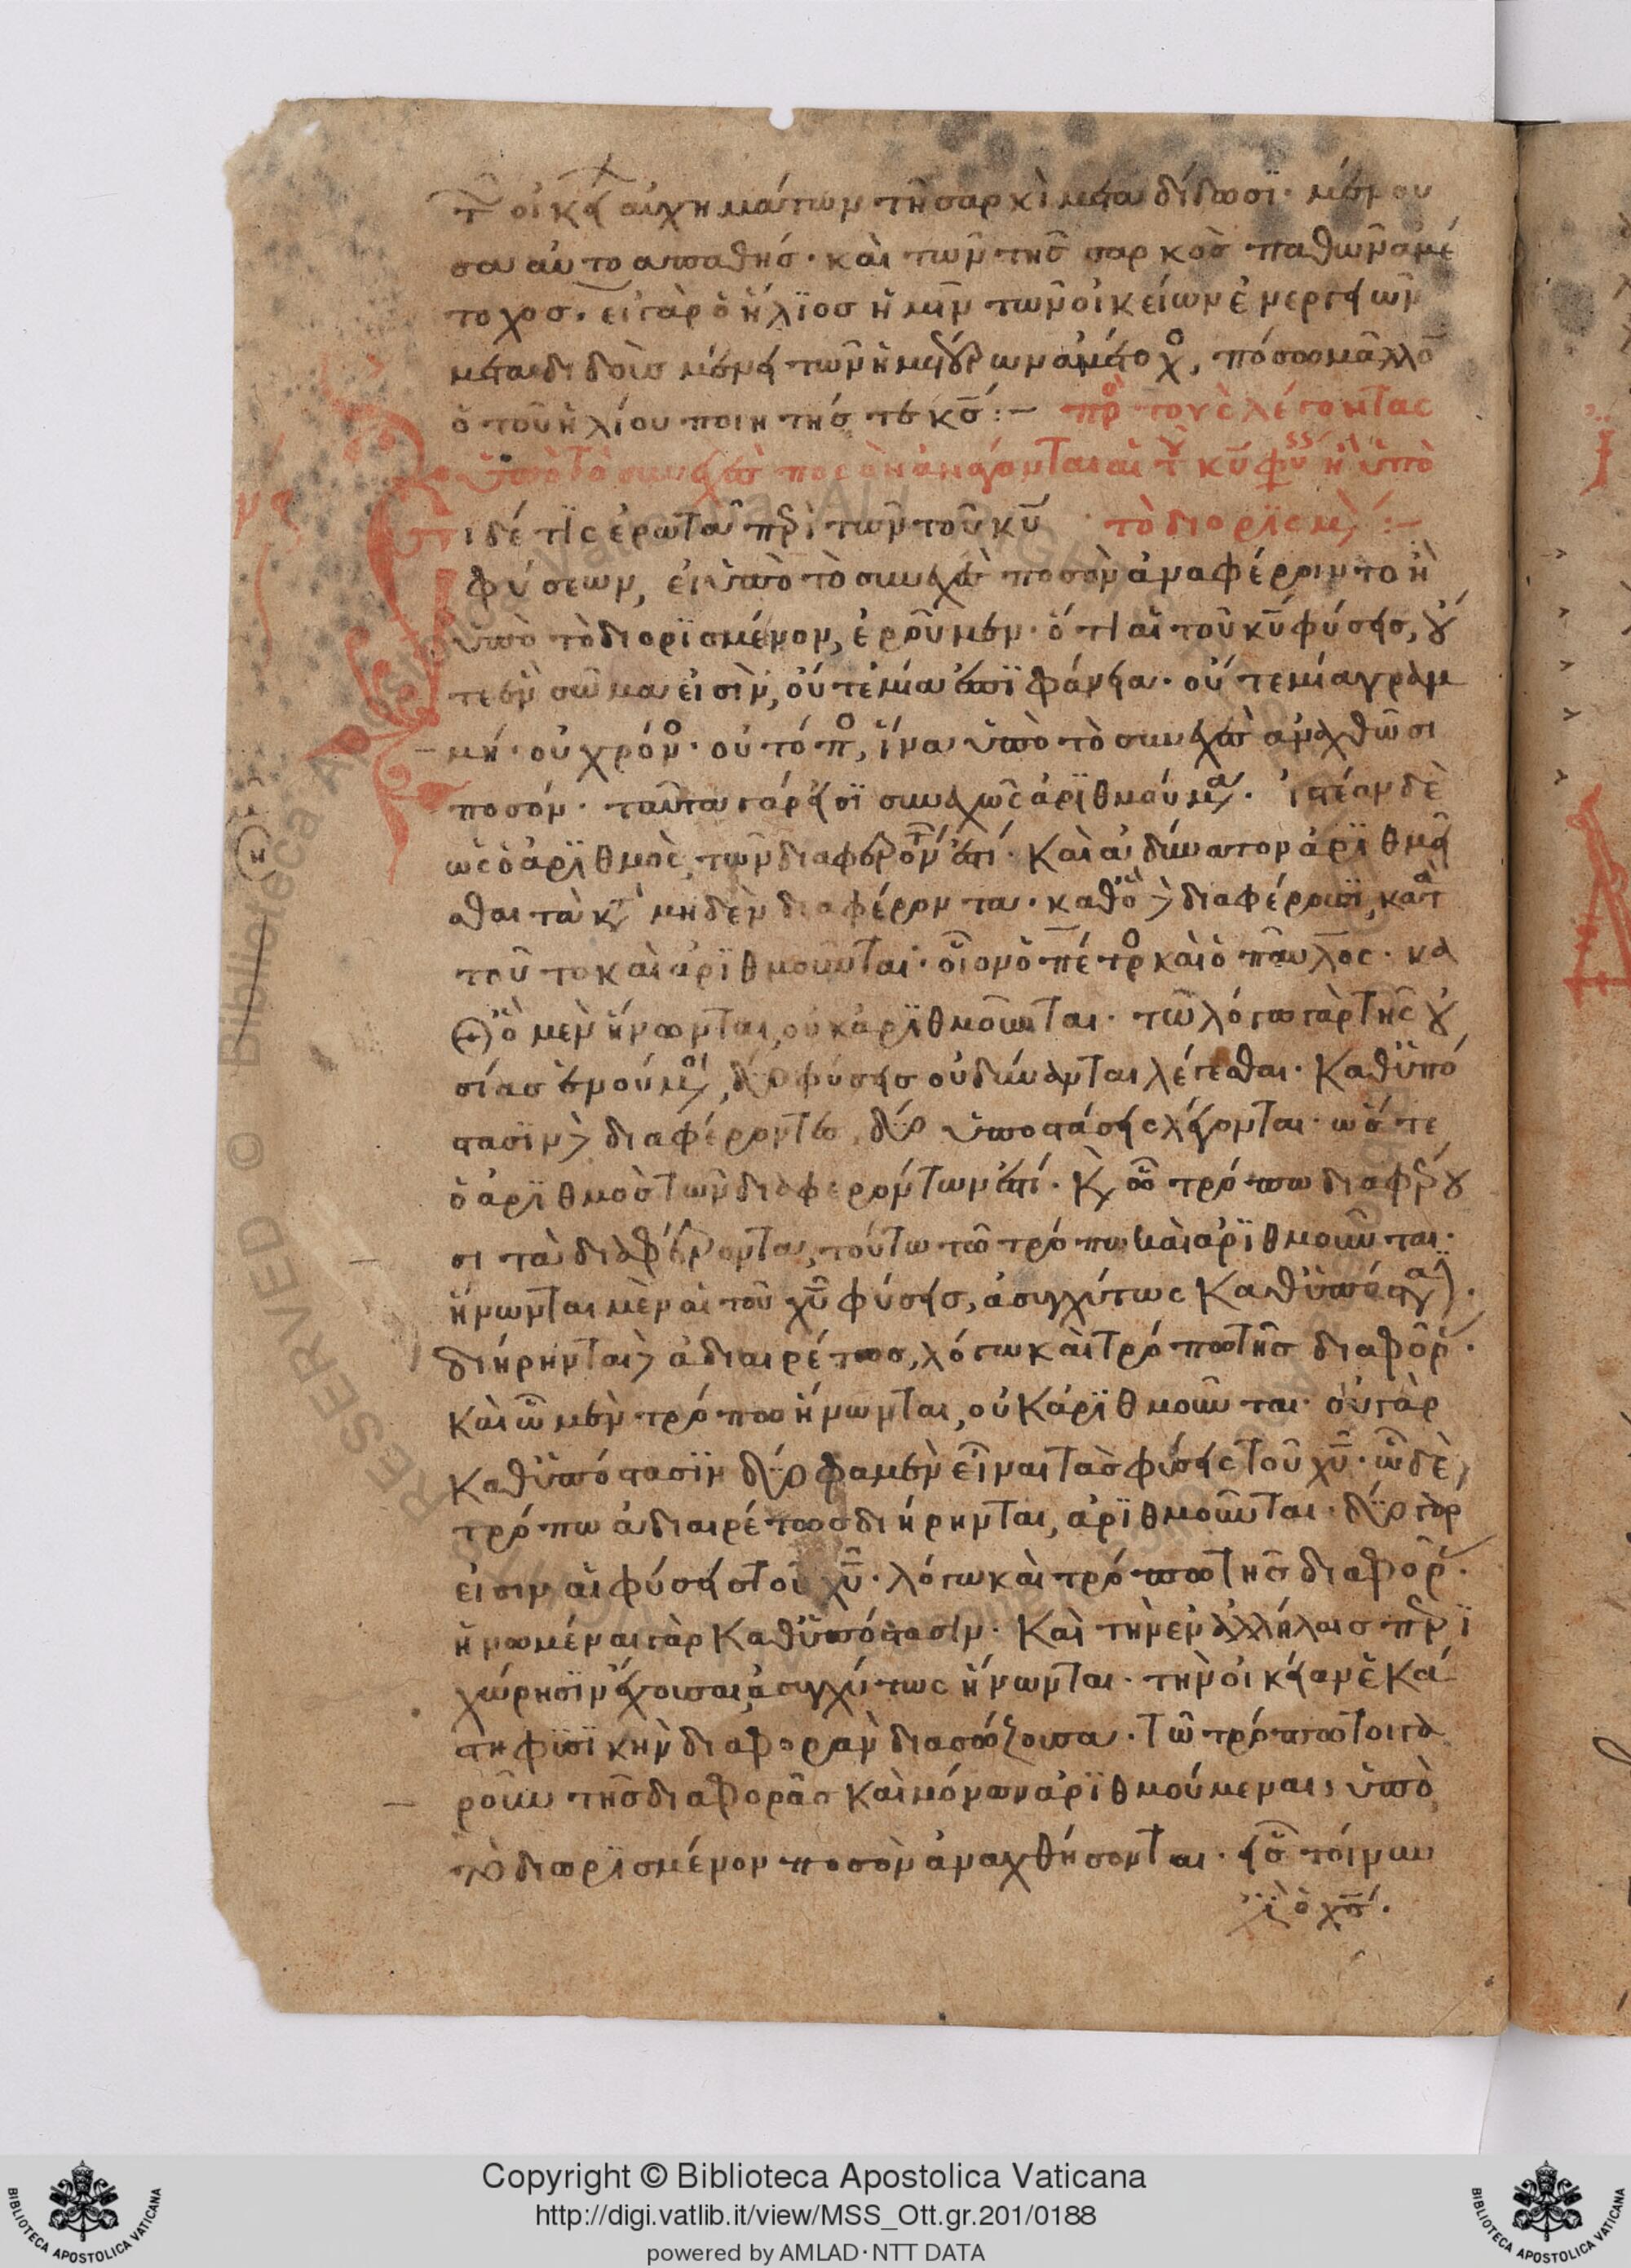 τῶν οἰκείων αὐχημάτων τῇ σαρκὶ μεταδίδωσι· μένου
σα αὐτὸ ἀπαθής· καὶ τῶν τῆς σαρκὸς παθῶν ἀμέ
τοχος. εἰ γὰρ ὁ ἥλϊος ἡμῖν τῶν οἰκείων ἐνεργειῶν
μεταδιδοὺς μένει τῶν ἡμετέρων ἀμέτοχος, πόσῳ μᾶλλον
ὁ τοῦ ἡλίου ποιητής τε κς̅:– πρὸς τοὺς λέγοντας
ὑπὸ τὸ συνεχὲς ποσὸν ἀνάγονται αἱ τοῦ κυ̅ φύσεις ἢ ὑπὸ
Εἰ δέ τϊς ἐρωτᾶ περὶ τῶν τοῦ κυ̅ τὸ διορϊσμένον:–
φύσεων, εἰ ὑπὸ τὸ συνεχὲς ποσὸν ἀναφέροιντο ἢ
ὑπὸ τὸ διορϊσμένον, ἐροῦμεν· ὅτι αἱ τοῦ κυ̅ φύσεις, οὔ
τε ἓν σῶμα εἰσὶν, οὔτε μία ἐπϊφάνεια· οὔτε μία γραμ
μή· οὐ χρόνος· οὐ τόπος, ἵνα ὑπὸ τὸ συνεχὲς ἀναχθῶσι
ποσόν· ταῦτα γάρ εἰσϊ συνεχῶς ἀρϊθμούμενα. ἰστέον δὲ
ὡς ὁ ἀρϊθμὸς, τῶν διαφερόντων ἐστί· καὶ ἀδύνατον ἀρϊθμεῖ
σθαι τὰ κατὰ μηδὲν διαφέροντα· καθὸ δὲ διαφέρουσϊ, κατὰ
τοῦτο καὶ ἀρϊθμοῦνται· οἷον ὁ πέτρος καὶ ὁ παῦλος· κα
θὸ μὲν ἥνωνται, οὐκ ἀρϊθμοῦνται· τῷ λόγῳ γὰρ τῆς οὐ
σίας ἑνούμενοι, δύο φύσεις οὐ δύνανται λέγεσθαι· καθ' ὑπό
στασϊν δὲ διαφέροντες, δύο ὑποστάσεις λέγονται· ὥστε
ὁ ἀρϊθμὸς τῶν διαφερόντων ἐστί· καὶ ᾧ τρόπῳ διαφέρου
σι τὰ διαφέροντα, τούτῳ τῷ τρόπῳ καὶ ἀρϊθμοῦνται·
ἥνωνται μὲν αἱ τοῦ χυ̅ φύσεις, ἀσυγχύτως καθ' ὑπόστασιν·
διήρηνται δὲ ἀδιαιρέτως, λόγῳ καὶ τρόπῳ τῆς διαφορᾶς·
καὶ ᾧ μὲν τρόπῳ ἥνωνται, οὐκ ἀρϊθμοῦνται· οὐ γὰρ
καθ' ὑπόστασϊν δύο φαμὲν εἶναι τὰς φύσεις τοῦ χυ̅· ᾧ δὲ
τρόπῳ ἀδιαιρέτως διήρηνται, ἀρϊθμοῦνται· δύο γάρ
εἰσιν αἱ φύσεις τοῦ χυ̅· λόγῳ καὶ τρόπῳ τῆς διαφορᾶς·
ἡνωμέναι γὰρ καθ' ὑπόστασϊν· καὶ τὴν ἐν ἀλλήλαις περϊ
χώρησϊν ἔχουσαι, ἀσυγχύτως ἥνωνται· τὴν οἰκείαν ἑκά
στη φυσϊκὴν διαφορὰν διασώζουσα· τῷ τρόπῳ τοιγα
ροῦν τῆς διαφορᾶς καὶ μόνων ἀρϊθμούμεναι, ὑπὸ
τὸ διωρϊσμένον ποσὸν ἀναχθήσονται· εἷς τοίνυν
ἐστὶ ὁ χς̅.
Copyright © Biblioteca Apostolica Vaticana
http://digi.vatlib.it/view/MSS_Ott.gr.201/0188
powered by AMLAD·NTT DATA